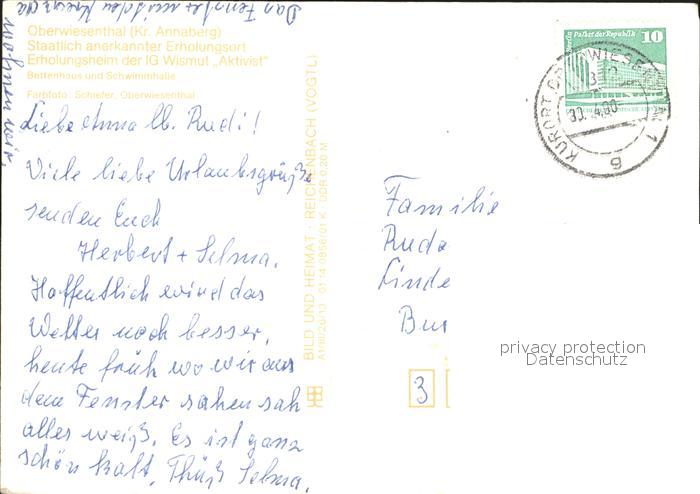 Das Fenster mit dem Kreuz da
wohnen wir.
Oberwiesenthal (Kr. Annaberg)
Staatlich anerkannter Erholungsort
Erholungsheim der IG Wismut „Aktivist"
Bettenhaus und Schwimmhalle
Farbfoto: Schiefer, Oberwiesenthal
Liebe Anna lb. Rudi!
Viele liebe Urlaubsgrüße
senden Euch
Herbert + Selma.
Hoffentlich wird das
Wetter noch besser,
heute früh wo wir aus
dem Fenster sahen sah
alles weiß. Es ist ganz
schön kalt. Thüß Selma.
BILD UND HEIMAT · REICHENBACH (VOGTL)
DDR 0,20 M
Berlin Palast der Republik
10
KURORT
WIESENTHAL 1
30. 4.80
g
Familie
Ruda
Linde
Bur
3
privacy protection
Datenschutz